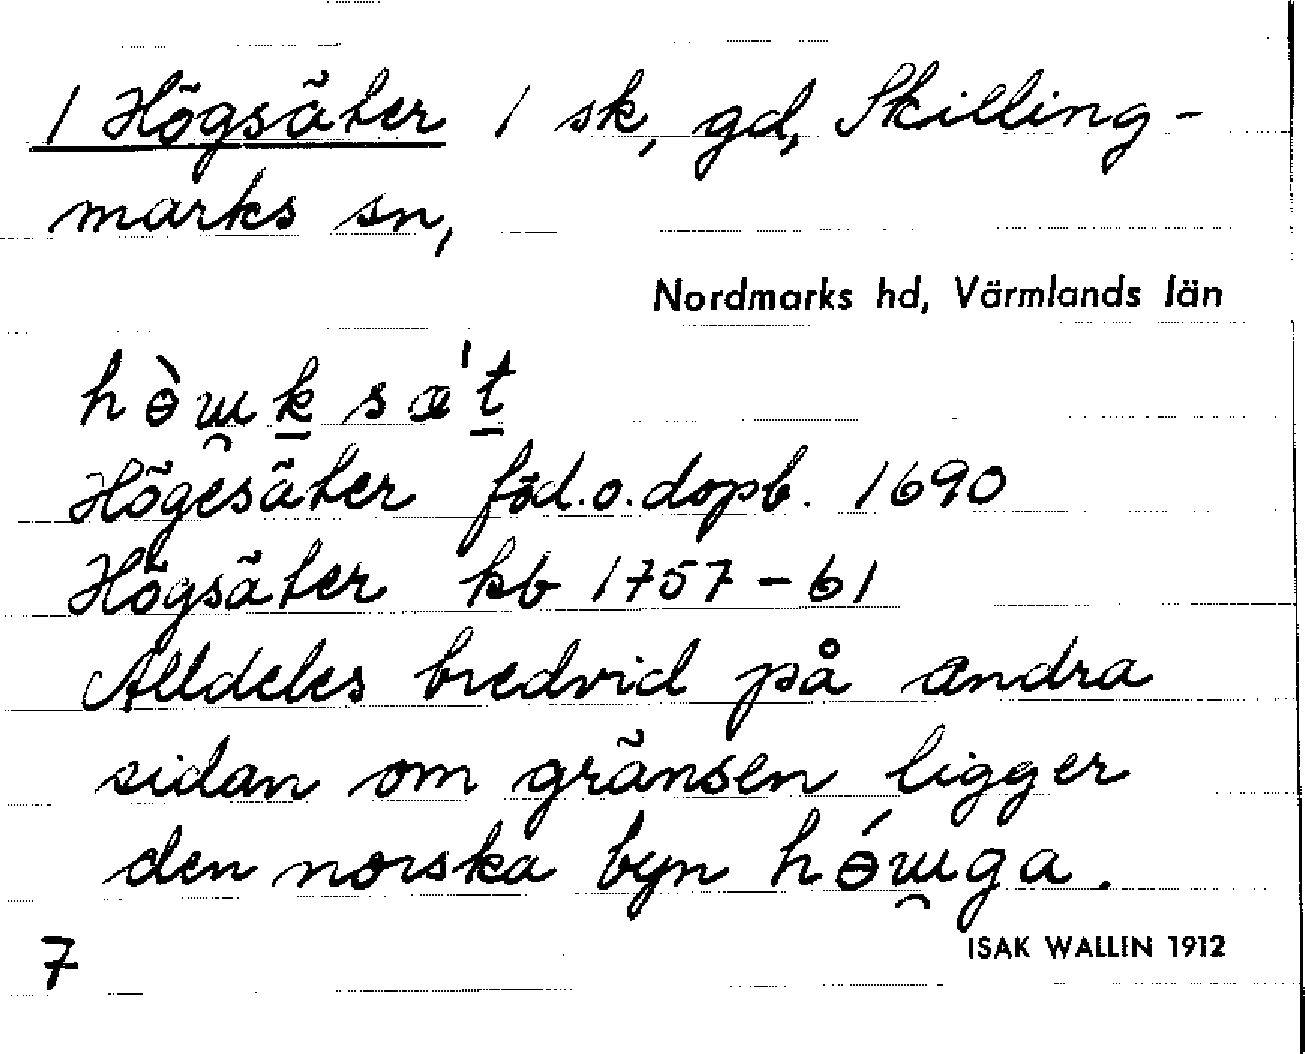 / Högsäter / sk, gd, Skilling-
marks sn,
Nordmarks hd, Värmlands län
hɵ̀ɯ̯k̠sæˈt̠
Högesäter föd.o.dopb. 1690
Högsäter kb 1757-61
Alldeles bredvid på andra
sidan om gränsen ligger
den norska byn hɵ́ɯ̯ga.
7
ISAK WALLIN 1912